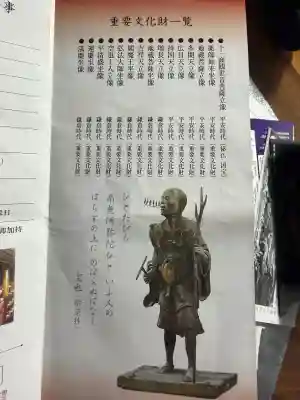 重要文化財一覧
●十一面観世音菩薩立像 平安時代(秘仏・国宝)
●薬師如来坐像 平安時代(重要文化財)
●地蔵菩薩立像 平安時代(重要文化財)
●多聞天立像 平安時代(重要文化財)
●広目天立像 平安時代(重要文化財)
●持国天立像 平安時代(重要文化財)
●増長天立像 鎌倉時代(重要文化財)
●地蔵菩薩坐像 鎌倉時代(重要文化財)
●吉祥天立像 鎌倉時代(重要文化財)
●閻魔王坐像 鎌倉時代(重要文化財)
●弘法大師坐像 鎌倉時代(重要文化財)
●空也上人立像 鎌倉時代(重要文化財)
●平清盛坐像 鎌倉時代(重要文化財)
●運慶坐像 鎌倉時代(重要文化財)
●湛慶坐像 鎌倉時代(重要文化財)
ひとたびも
南無阿弥陀仏といふ人の
はちすの上にのぼらぬはなし
空也
事
加持